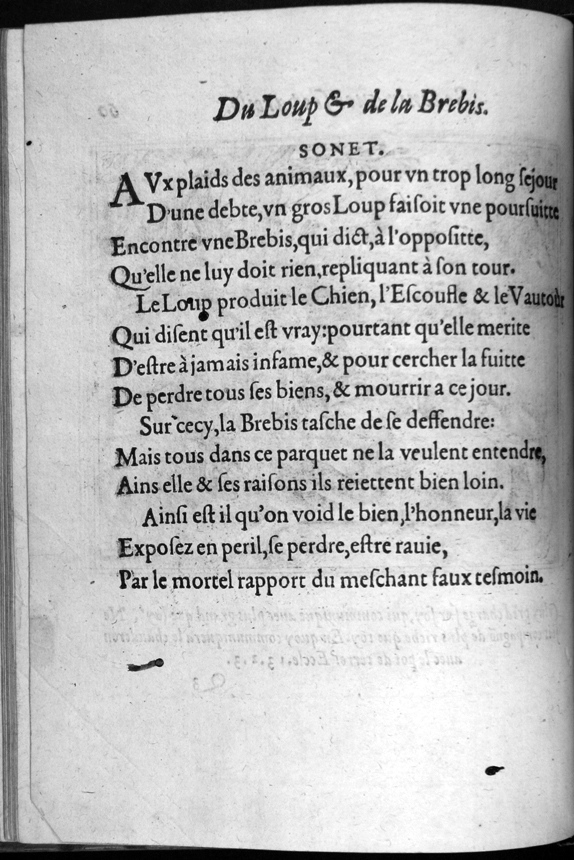 Du Loup & de la Brebis.
SONET.
AVx plaids des animaux, pour vn trop long ſejour
D'une debte, vn gros Loup faiſoit vne pourſuitte
Encontre vne Brebis, qui dict, à l'oppoſitte,
Qu'elle ne luy doit rien, repliquant à ſon tour.
Le Loup produit le Chien, l'Eſcoufle & le Vautour
Qui diſent qu'il eſt vray: pourtant qu'elle merite
D'eſtre à jamais infame, & pour cercher la fuitte
De perdre tous ſes biens, & mourrir a ce jour.
Sur cecy, la Brebis taſche de ſe deffendre:
Mais tous dans ce parquet ne la veulent entendre,
Ains elle & ſes raiſons ils reiettent bien loin.
Ainſi eſt il qu'on void le bien, l'honneur, la vie
Expoſez en peril, ſe perdre, eſtre rauie,
Par le mortel rapport du meſchant faux teſmoin.